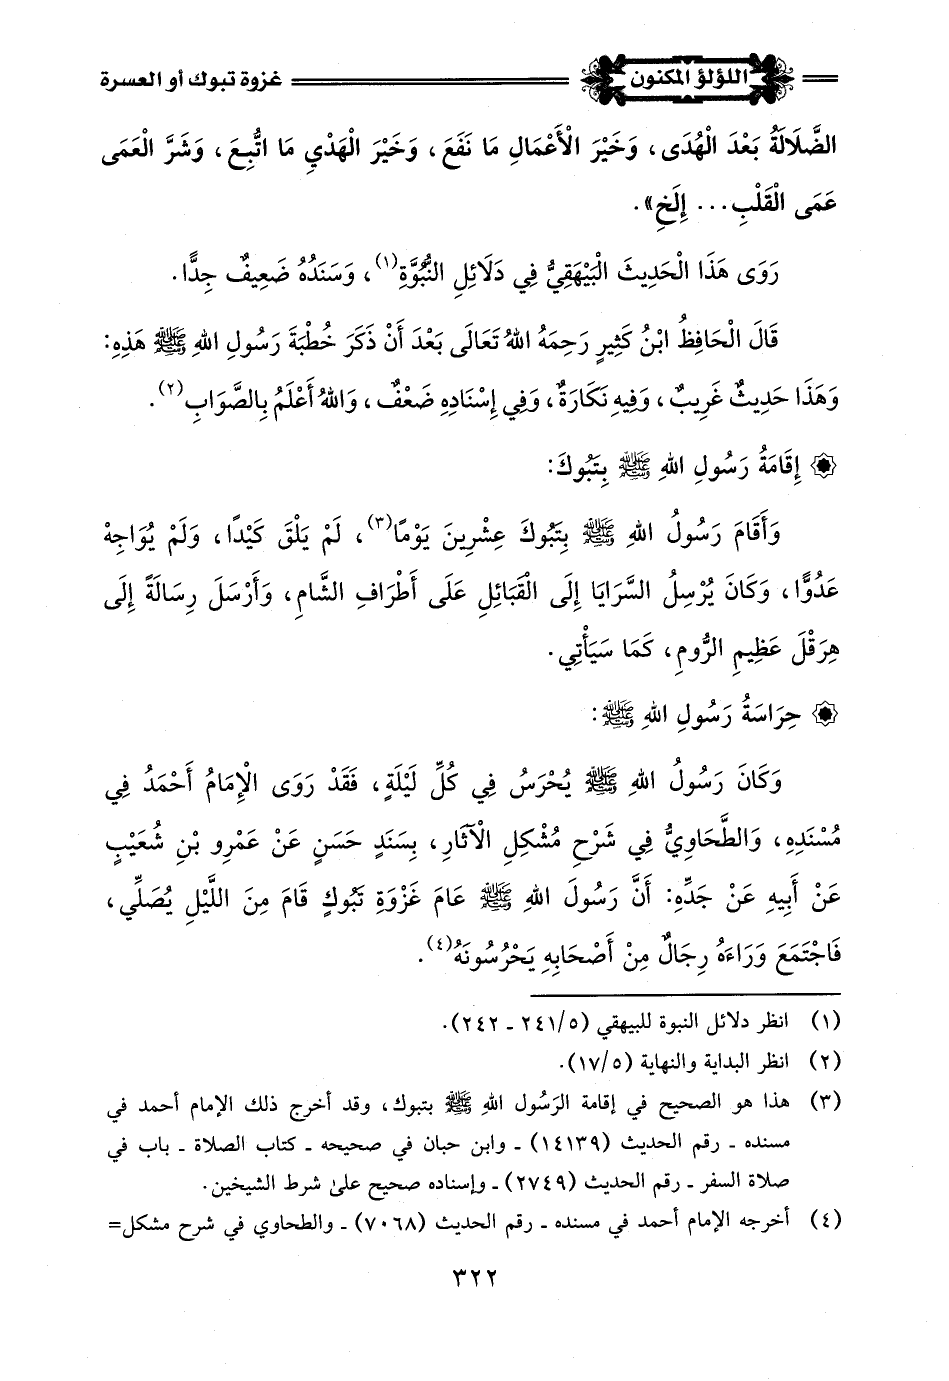 اللؤلؤ المكنون
غزوة تبوك أو العسرة
الضَّلَالَةُ بَعْدَ الْهُدَى، وَخَيْرَ الْأَعْمَالِ مَا نَفَعَ، وَخَيْرَ الْهَدْيِ مَا اتُّبِعَ، وَشَرَّ الْعَمَى
عَمَى الْقَلْبِ... إِلَخِ».
رَوَى هَذَا الْحَدِيثَ الْبَيْهَقِيُّ فِي دَلَائِلِ النُّبُوَّةِ(١)، وَسَنَدُهُ ضَعِيفٌ جِدًّا.
قَالَ الْحَافِظُ ابْنُ كَثِيرٍ رَحِمَهُ اللهُ تَعَالَى بَعْدَ أَنْ ذَكَرَ خُطْبَةَ رَسُولِ اللهِ ﷺ هَذِهِ:
وَهَذَا حَدِيثٌ غَرِيبٌ، وَفِيهِ نَكَارَةٌ، وَفِي إِسْنَادِهِ ضَعْفٌ، وَاللهُ أَعْلَمُ بِالصَّوَابِ(٢).
إِقَامَةُ رَسُولِ اللهِ ﷺ بِتَبُوكَ:
وَأَقَامَ رَسُولُ اللهِ ﷺ بِتَبُوكَ عِشْرِينَ يَوْمًا(٣)، لَمْ يَلْقَ كَيْدًا، وَلَمْ يُوَاجِهْ
عَدُوًّا، وَكَانَ يُرْسِلُ السَّرَايَا إِلَى الْقَبَائِلِ عَلَى أَطْرَافِ الشَّامِ، وَأَرْسَلَ رِسَالَةً إِلَى
هِرَقْلَ عَظِيمِ الرُّومِ، كَمَا سَيَأْتِي.
حِرَاسَةُ رَسُولِ اللهِ ﷺ:
وَكَانَ رَسُولُ اللهِ ﷺ يُحْرَسُ فِي كُلِّ لَيْلَةٍ، فَقَدْ رَوَى الْإِمَامُ أَحْمَدُ فِي
مُسْنَدِهِ، وَالطَّحَاوِيُّ فِي شَرْحِ مُشْكِلِ الْآثَارِ، بِسَنَدٍ حَسَنٍ عَنْ عَمْرِو بْنِ شُعَيْبٍ
عَنْ أَبِيهِ عَنْ جَدِّهِ: أَنَّ رَسُولَ اللهِ ﷺ عَامَ غَزْوَةِ تَبُوكٍ قَامَ مِنَ اللَّيْلِ يُصَلِّي،
فَاجْتَمَعَ وَرَاءَهُ رِجَالٌ مِنْ أَصْحَابِهِ يَحْرُسُونَهُ(٤).
(١) انظر دلائل النبوة للبيهقي (٢٤١/٥ ـ ٢٤٢).
(٢) انظر البداية والنهاية (١٧/٥).
(٣) هذا هو الصحيح في إقامة الرَسُول اللهِ ﷺ بتبوك، وقد أخرج ذلك الإمام أحمد في
مسنده ـ رقم الحديث (١٤١٣٩) ـ وابن حبان في صحيحه ـ كتاب الصلاة ـ باب في
صلاة السفر ـ رقم الحديث (٢٧٤٩) ـ وإسناده صحيح على شرط الشيخين.
(٤) أخرجه الإمام أحمد في مسنده ـ رقم الحديث (٧٠٦٨) ـ والطحاوي في شرح مشكل=
٣٢٢